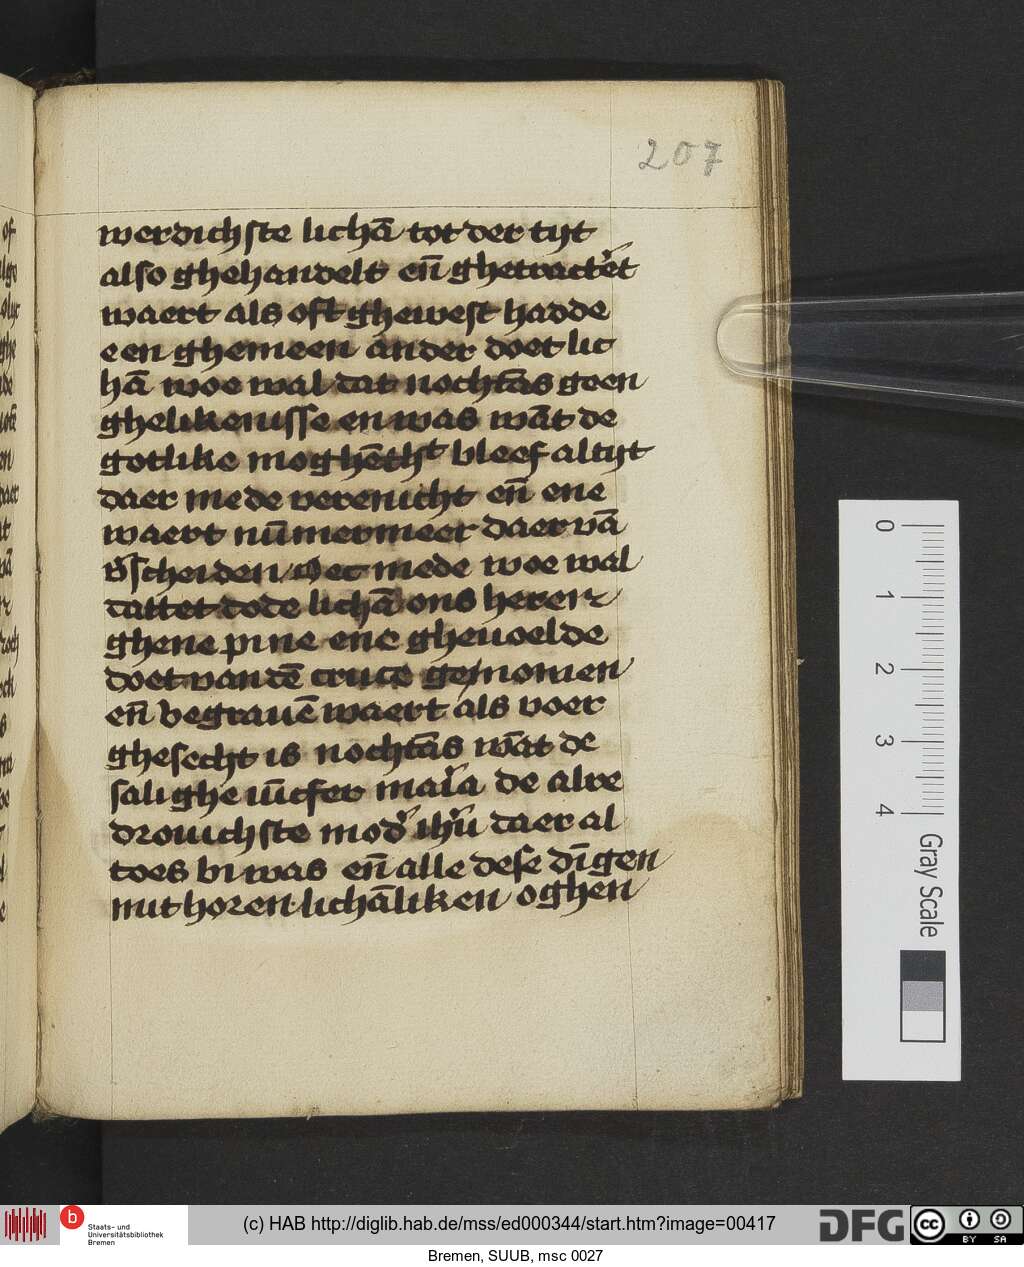 207
werdichste lichā tot der tyt
also ghehandelt en̄ ghetractert
waert als oft ghewest hadde
een ghemeen ander doet lic
hā woe wal dat nochtās geen
ghelikenisse en was wāt de
gotlike moghēthᵗ bleef altyt
daer mede verenicht en̄ ene
waert nūmermeer daer vā
v̄scheiden Oec mede woe wal
dattet dode lichā ons heren
ghene pine ene gheuoelde
doet van dē cruce genomen
en̄ begrauē waert als voer
ghesecht is nochtās wāt de
salighe iūcfer maria de alre
drouichste mod' ih̄u daer al
toes bi was en̄ alle dese dīgen
mit horen lichāliken oghen
0
1
2
3
4
Gray Scale
b
Staats- und
Universitätsbibliothek
Bremen
(c) HAB http://diglib.hab.de/mss/ed000344/start.htm?image=00417
DFG
cc
BY SA
Bremen, SUUB, msc 0027